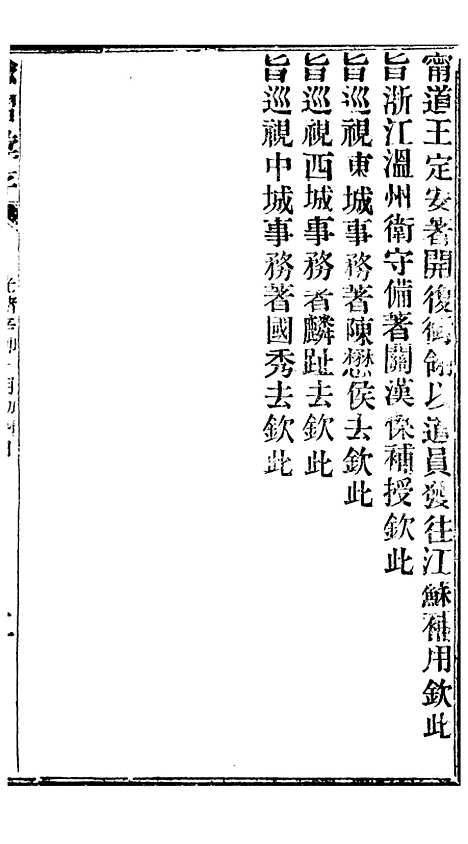 甯道王定安著開復銜翎以道員發往江蘇補用欽此
旨浙江溫州衛守備著關漢傑補授欽此
旨巡視東城事務著陳懋侯去欽此
旨巡視西城事務著麟趾去欽此
旨巡視中城事務著國秀去欽此